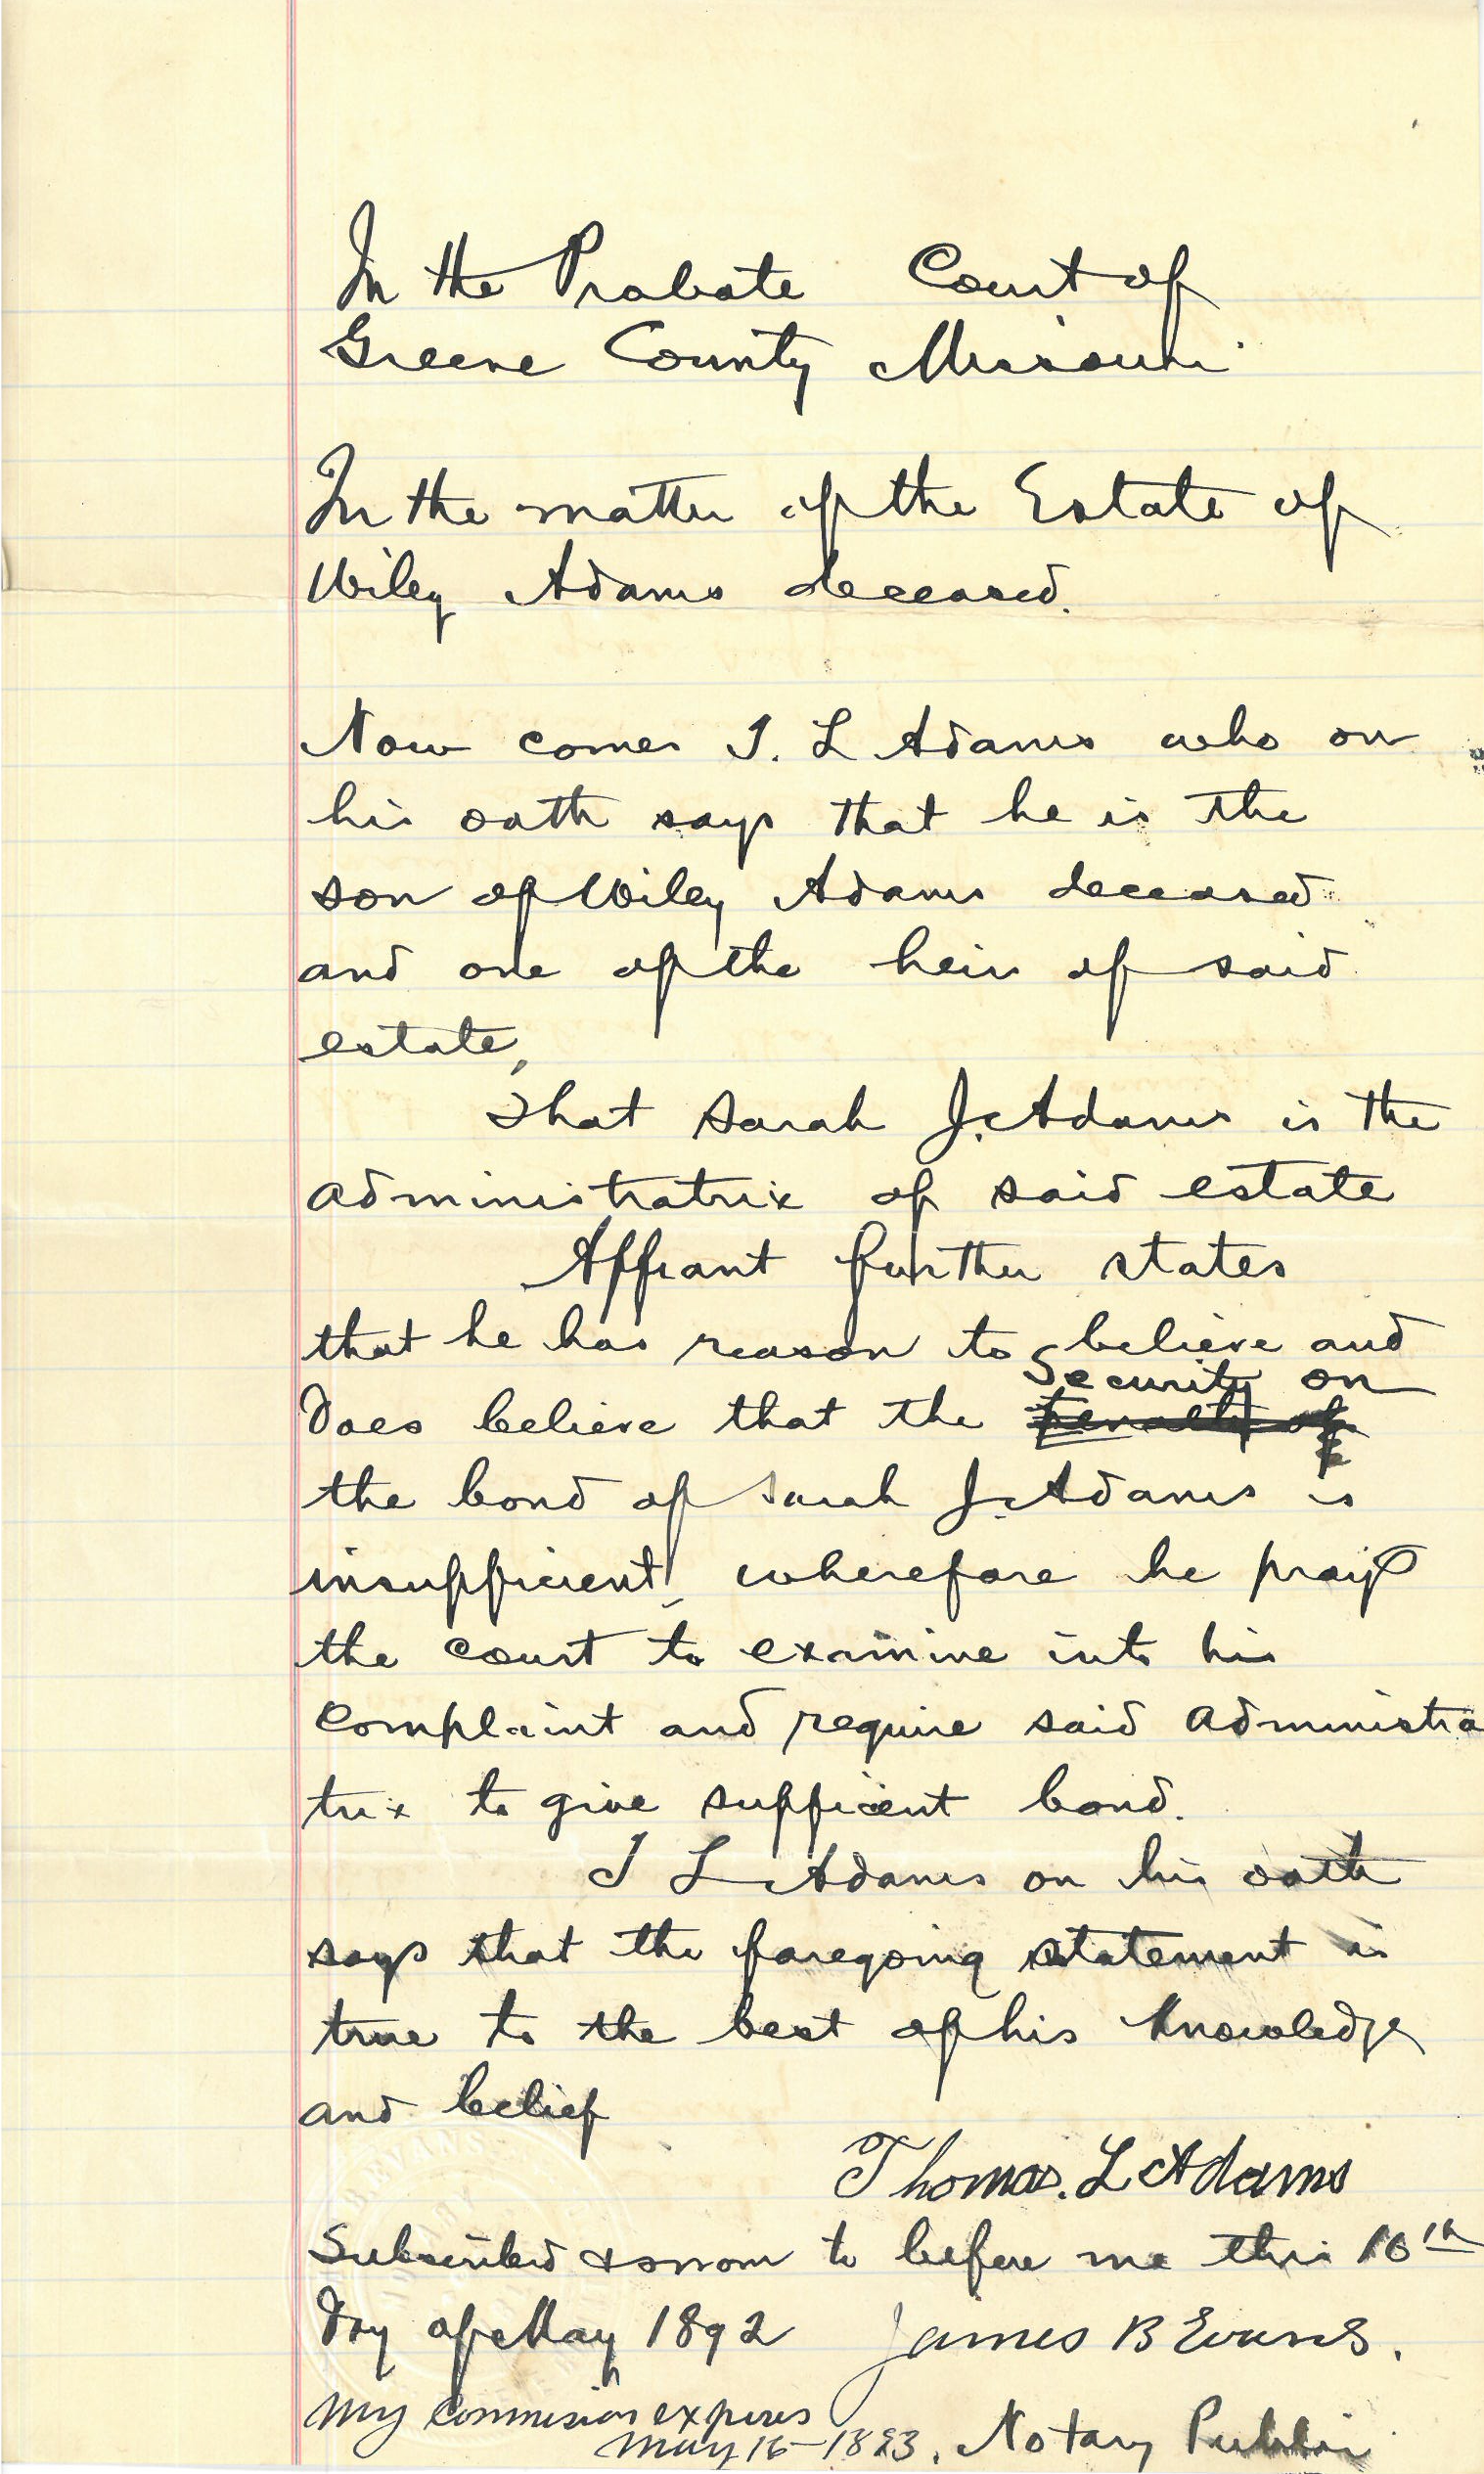 In the Probate Court of
Greene County Missouri
In the matter of the Estate of
Wiley Adams deceased.
Now comes T. L Adams who on
his oath says that he is the
son of Wiley Adams deceased
and one of the heirs of said
estate,
That Sarah J. Adams is the
administratrix of said estate
Affiant further states
that he has reason to believe and
security on
does believe that the penalty of
the bond of Sarah J. Adams is
insufficient, wherefore he prays
the court to examine into his
complaint and require said administra
trix to give sufficient bond.
T L Adams on his oath
says that the foregoing statement is
true to the best of his knowledge
and belief
Thomas. L Adams
Subscribed & sworn to before me this 16th
day of May 1892 James B Evans.
My commission expires
May 16-1893. Notary Public
EVANS